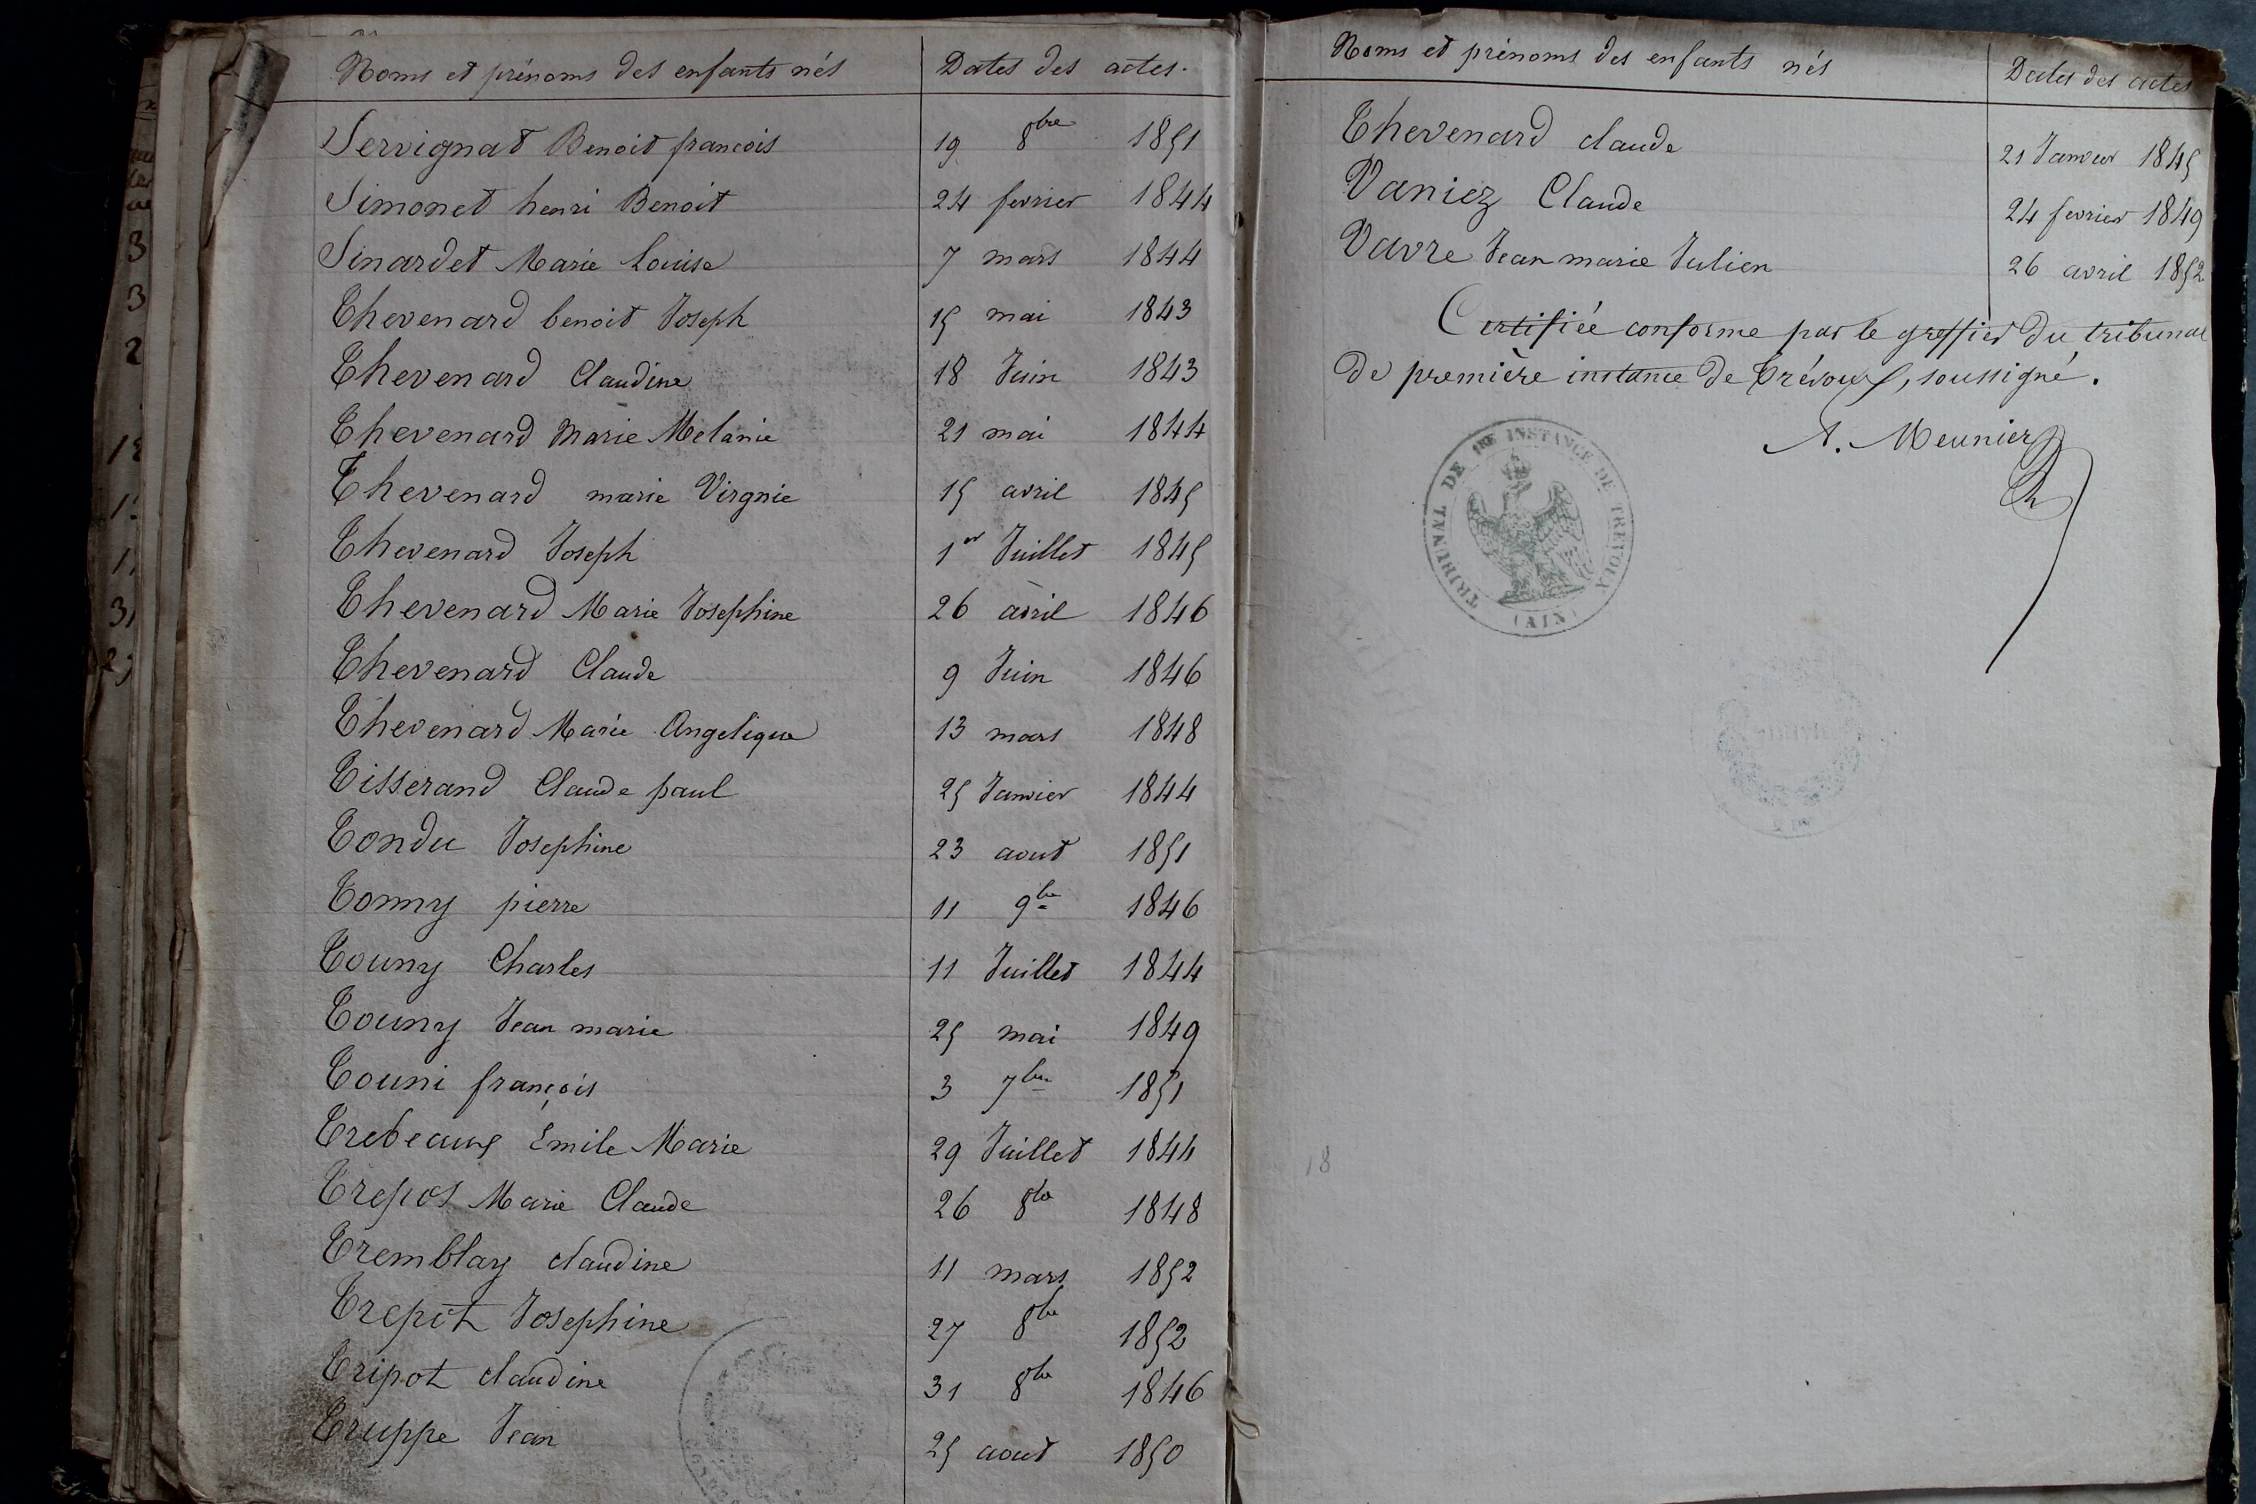 Noms et prénoms des enfants nés Dates des actes.
Servignat Benoit francois 19 8bre 1851
Simonet henri Benoit 24 fevrier 1844
Sinardet Marie Louise 7 mars 1844
Thevenard benoit Joseph 15 mai 1843
Thevenard Claudine 18 Juin 1843
Thevenard Marie Melanie 21 mai 1844
Thevenard marie Virgnie 15 avril 1845
Thevenard Joseph 1er Juillet 1845
Thevenard Marie Josephine 26 avril 1846
Thevenard Claude 9 Juin 1846
Thevenard Marie Angelique 13 mars 1848
Tisserand Claude paul 25 Janvier 1844
Tondu Josephine 23 aout 1851
Tonny pierre 11 9bre 1846
Touny Charles 11 Juillet 1844
Touny Jean marie 25 mai 1849
Touni françois 3 7bre 1851
Trebeaux Émile Marie 29 Juillet 1844
Trepos Marie Claude 26 8bre 1848
Tremblay claudine 11 mars 1852
Trepot Josephine 27 8bre 1852
Tripot claudine 31 8bre 1846
Truppe Jean 25 aout 1850
Noms et prénoms des enfants nés Dates des actes
Thevenard claude 21 Janvier 1845
Vaniez Claude 24 fevrier 1849
Vavre Jean marie Julien 26 avril 1852
Certifiée conforme par le greffier du tribunal
de première instance de Trévoux, soussigné.
A. Meunier
TRIBUNAL DE 1RE INSTANCE DE TREVOUX
(AIN)
18